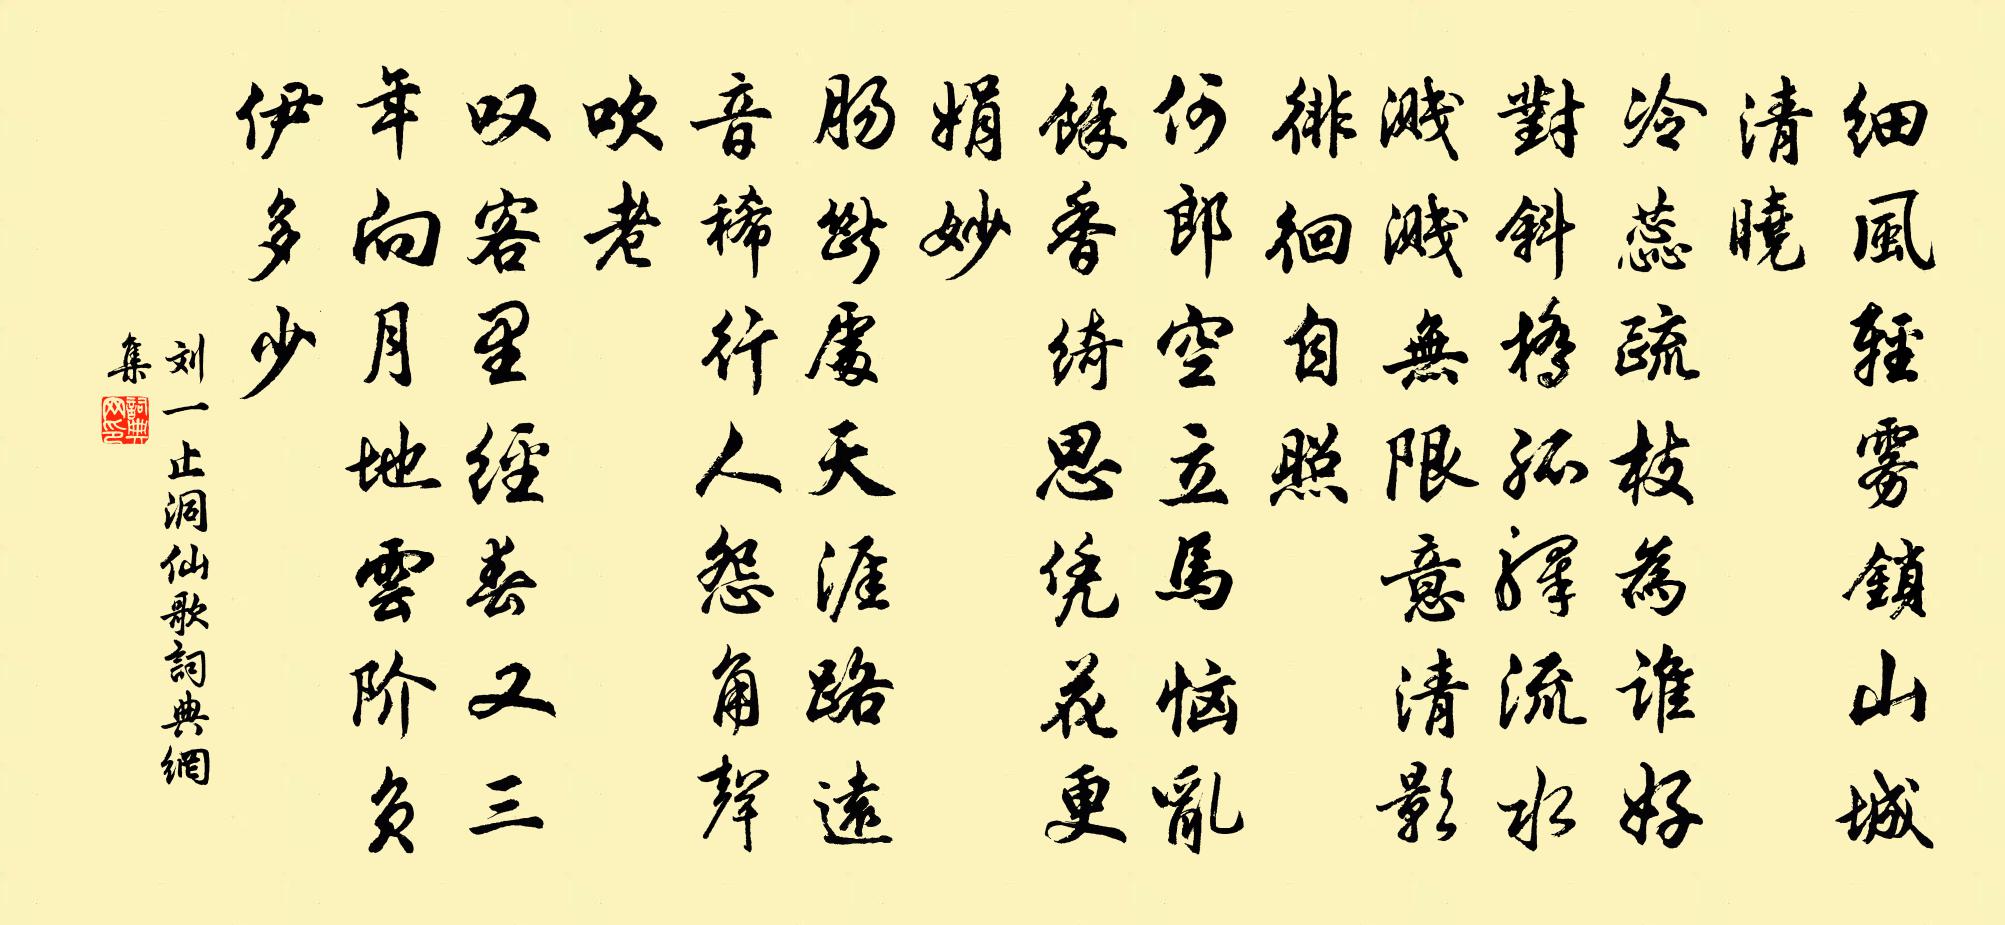 细風輕雾鎖山城
清曉
冷蕊疏枝為谁好
對斜橋孤驛流水
溅溅無限意清影
徘徊自照
何郎空立馬恼亂
餘香綺思凭花更
娟妙
肠斷處天涯路遠
音稀行人怨角聲
吹老
叹客里經春又三
年向月地雲阶负
伊多少
刘一止洞仙歌詞典網
集
詞典網印